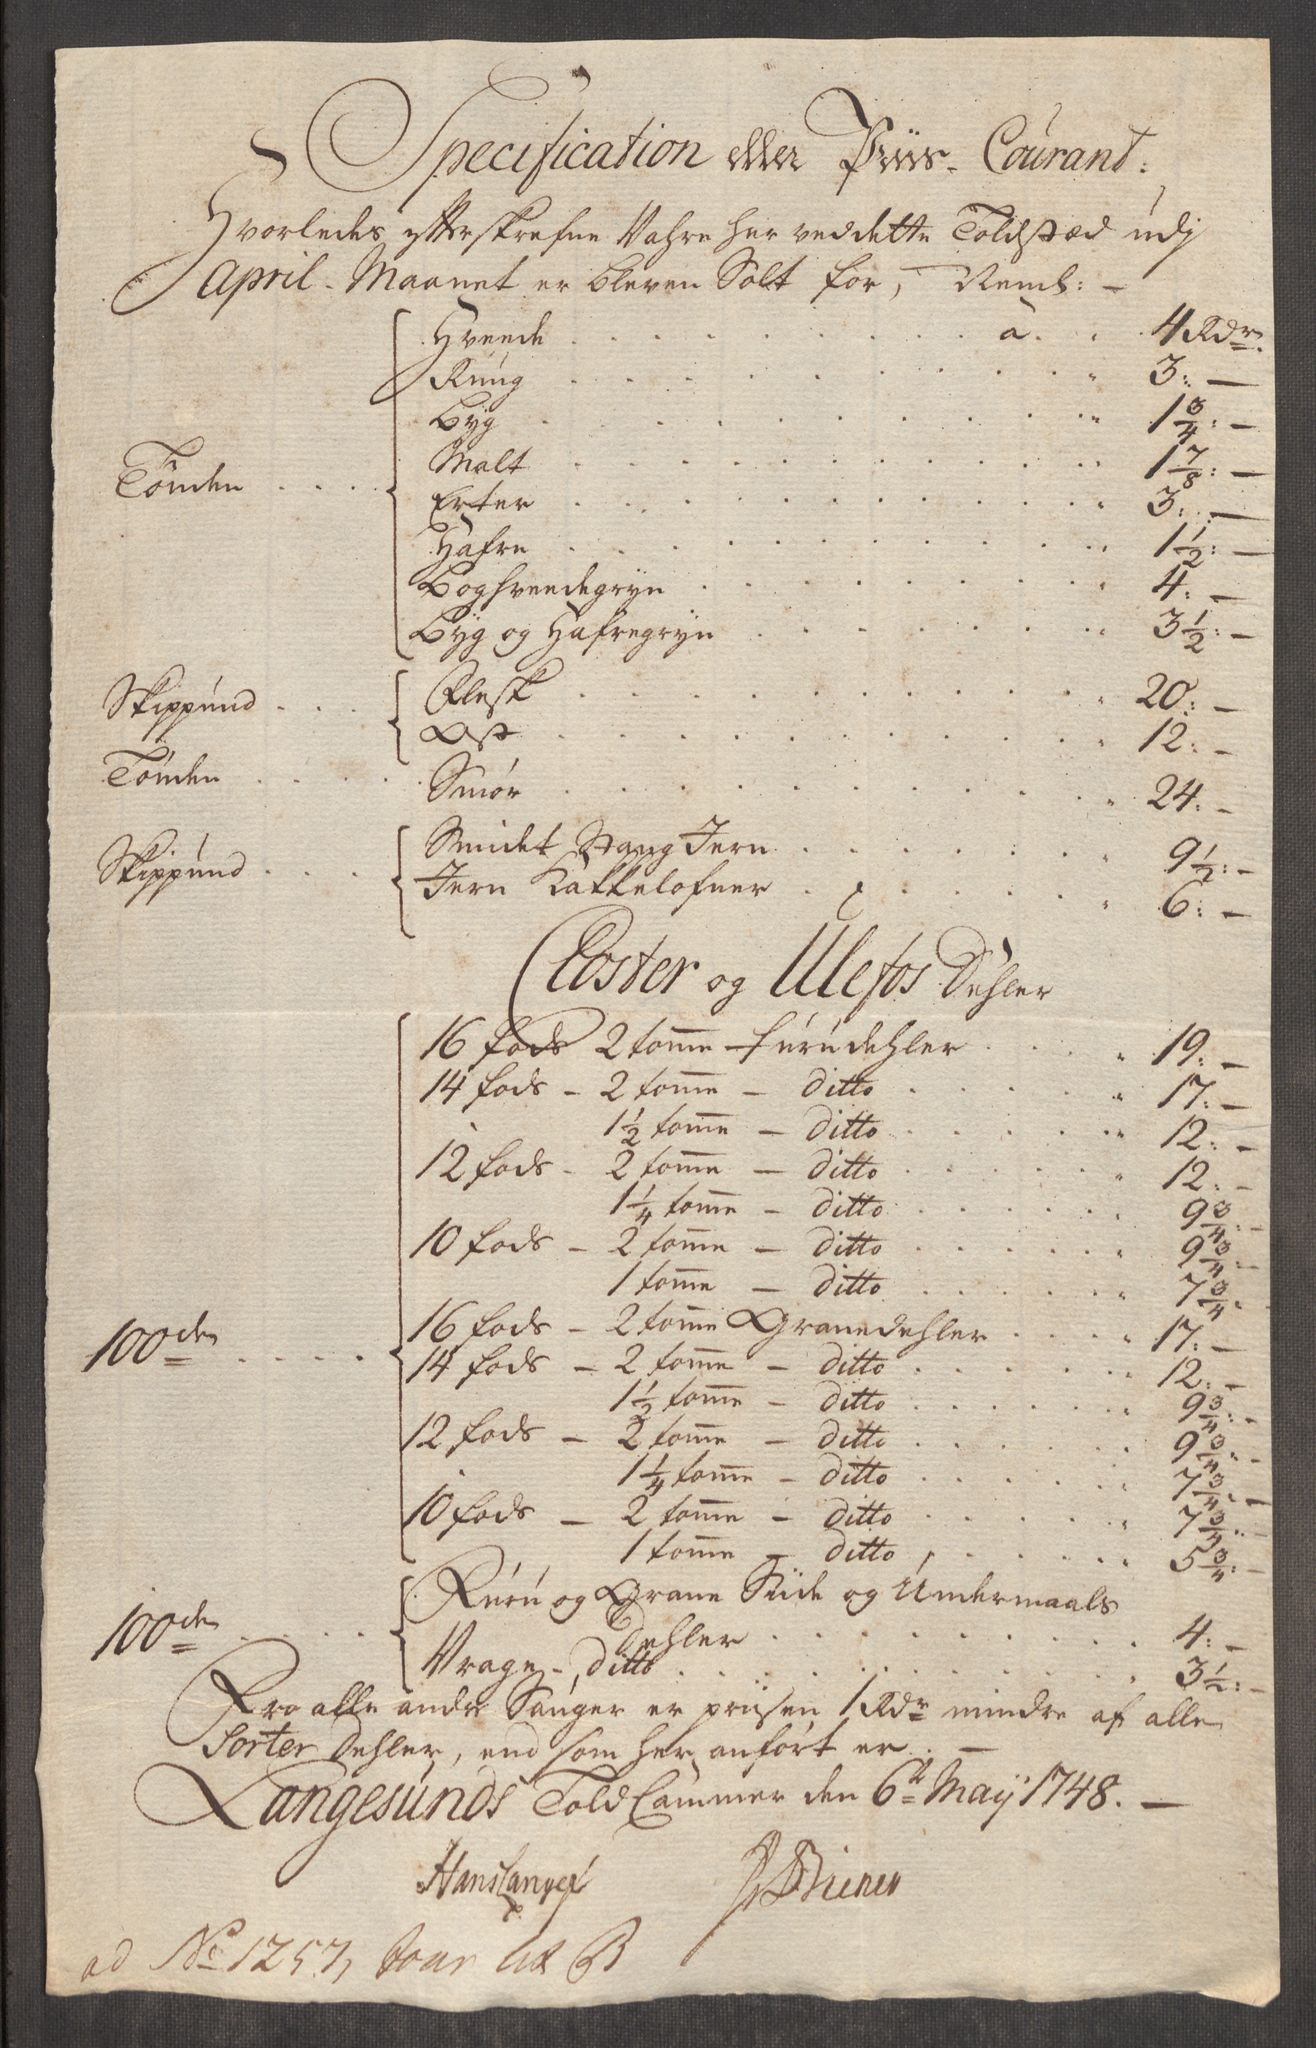 Specification eller Priis-Courant:
Hvorledes efterskrefne Vahre her ved dette Toldstæd udj
April-Maanet er bleven Solt for, Neml: -
Tönden . . . Hveede . . . . . . . . . a . . 4 Rdr.
Rúug . . . . . . . . . . 3: -
Byg . . . . . . . . . . 1 3/4: -
Malt . . . . . . . . . . 1 7/8: -
Erter . . . . . . . . . . 3: -
Hafre . . . . . . . . . . 1 1/2: -
Boghveedegryn . . . . . . . . 4: -
Byg og Hafregryn . . . . . . . 3 1/2: -
Skippund . . . Flesk . . . . . . . . . . 20: -
Ost . . . . . . . . . . 12: -
Tönden . . . . Smör . . . . . . . . . . 24: -
Skippund . . . Smidet Stang Jern . . . . . . . 9 1/2: -
Jern Kakkelofner . . . . . . . 6: -
Closter og Ulefos Dehler
16 fods 2 tomme furúdehler . . . . 19: -
14 fods - 2 tomme - ditto . . . . . . 17: -
1 1/2 tomme - ditto . . . . . . 12: -
12 fods - 2 tomme - ditto . . . . . . 12: -
1 1/4 tomme - ditto . . . . . . 9 3/4: -
10 fods - 2 tomme - ditto . . . . . . 9 3/4: -
1 tomme - ditto . . . . . . 7 3/4: -
100de . . . . 16 fods - 2 tomme Granedehler . . . . 17: -
14 fods - 2 tomme - ditto . . . . . . 12: -
1 1/2 tomme - ditto . . . . . . 9 3/4: -
12 fods - 2 tomme - ditto . . . . . . 9 3/4: -
1 1/4 tomme - ditto . . . . . . 7 3/4: -
10 fods - 2 tomme - ditto . . . . . . 7 3/4: -
1 tomme - ditto . . . . . . 5 3/4: -
100de . . . . Fúrú og Grane Siide og Undermaals
Dehler . . . . . . . . . 4: -
Vrage - ditto . . . . . . . . . . 3 1/2: -
Fra alle andre Sauger er priisen 1 Rdr mindre af alle
Sorter Dehler, end som her anfört er. -
Langesunds Told Cammer den 6te Maÿ 1748. -
Hans
ad No 1257,